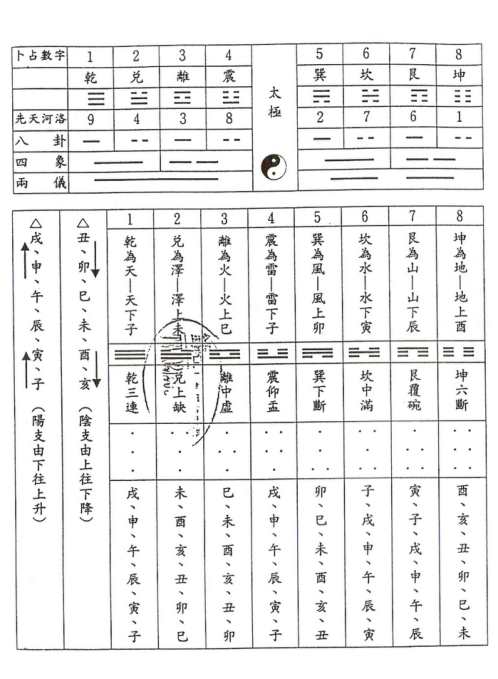 卜占數字 1 2 3 4 太極 5 6 7 8
乾 兌 離 震 巽 坎 艮 坤
先天河洛 9 4 3 8 2 7 6 1
八卦
四象
兩儀
1 2 3 4 5 6 7 8
△戌、申、午、辰、寅、子（陽支由下往上升）
△丑、卯、巳、未、酉、亥（陰支由上往下降）
乾為天—天下子
乾三連
戌、申、午、辰、寅、子
兌為澤—澤上未
兌上缺
未、酉、亥、丑、卯、巳
離為火—火上巳
離中虛
巳、未、酉、亥、丑、卯
震為雷—雷下子
震仰盂
戌、申、午、辰、寅、子
巽為風—風上卯
巽下斷
卯、巳、未、酉、亥、丑
坎為水—水下寅
坎中滿
子、戌、申、午、辰、寅
艮為山—山下辰
艮覆碗
寅、子、戌、申、午、辰
坤為地—地上酉
坤六斷
酉、亥、丑、卯、巳、未